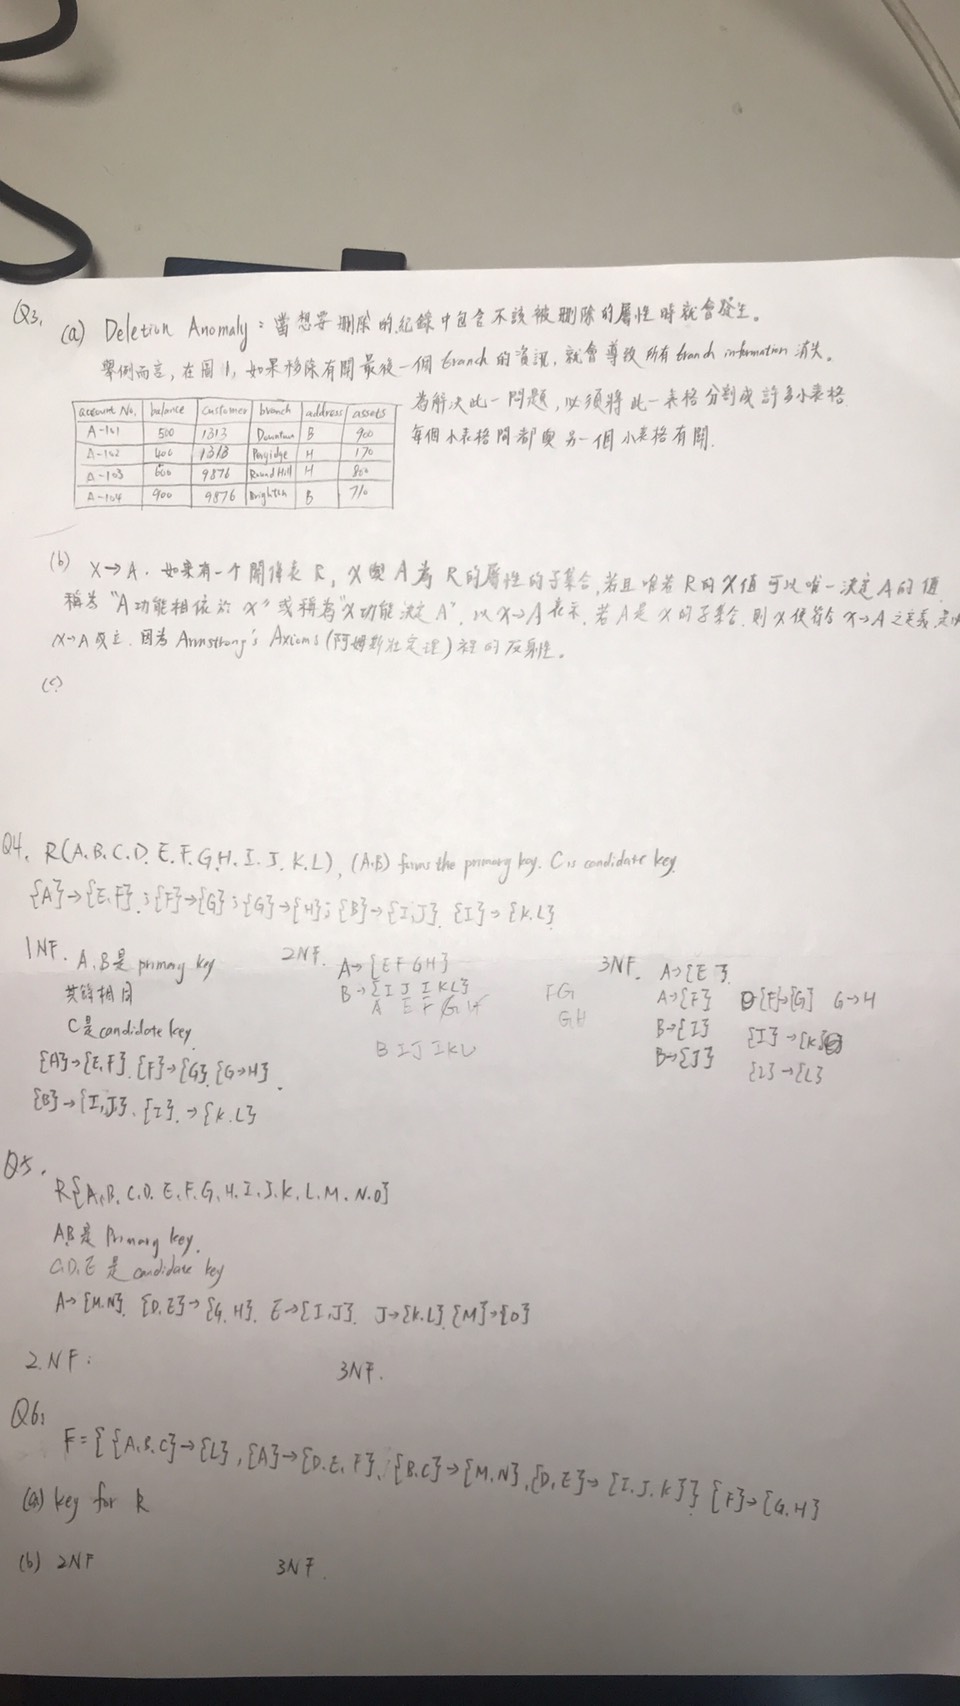 Q3.
(a) Deletion Anomaly：當想要刪除的紀錄中包含不該被刪除的屬性時就會發生。
舉例而言，在圖1，如果移除有關最後一個 branch 的資訊，就會導致所有 branch information 消失。
為解決此一問題，必須將此一表格分割成許多小表格
每個小表格間都與另一個小表格有關．
account No. balance customer branch address assets
A-101 500 1313 Downtown B 900
A-102 400 1313 H 170
A-103 600 9876 Round Hill H 800
A-104 900 9876 Brighton B 710
(b) X→A．如果有一个關係表 R，X與A為R的屬性的子集合，若且唯若R的X值可以唯一決定A的值
稱為“A功能相依於X”或稱為“X功能決定A”，以X→A表示，若A是X的子集合，則X便符合X→A之定義，
X→A成立．因為Armstrong's Axioms (阿姆斯壯定理)裡的反身性。
(c)
Q4. R(A.B.C.D.E.F.G.H.I.J.K.L), (A.B) forms the primary key. C is candidate key.
{A}→{E,F}；{F}→{G}；{G}→{H}；{B}→{I,J}. {I}→{K.L}
1NF. A,B是primary key
其餘相同
C是candidate key
{A}→{E,F}. {F}→{G}. {G→H}.
{B}→{I,J}. {I}.→{K.L}
2NF. A→{E F G H}
B→{I J I K L}
A E F G H
B I J I K L
F G
G H
3NF. A→{E}.
A→{F} {F}→{G} G→H
B→{I} {I}→{K}
B→{J} {I}→{L}
Q5.
R{A.B.C.D.E.F.G.H.I.J.K.L.M.N.O}
A.B是Primary key.
C.D.E是candidate key
A→{M.N}. {D.E}→{G.H}. E→{I.J}. J→{K.L}. {M}→{O}
2.NF： 3NF.
Q6:
F={{A.B.C}→{L},{A}→{D.E.F}.{B.C}→{M.N}.{D.E}→{I.J.K}} {F}→{G.H}
(a) key for R
(b) 2NF 3NF.